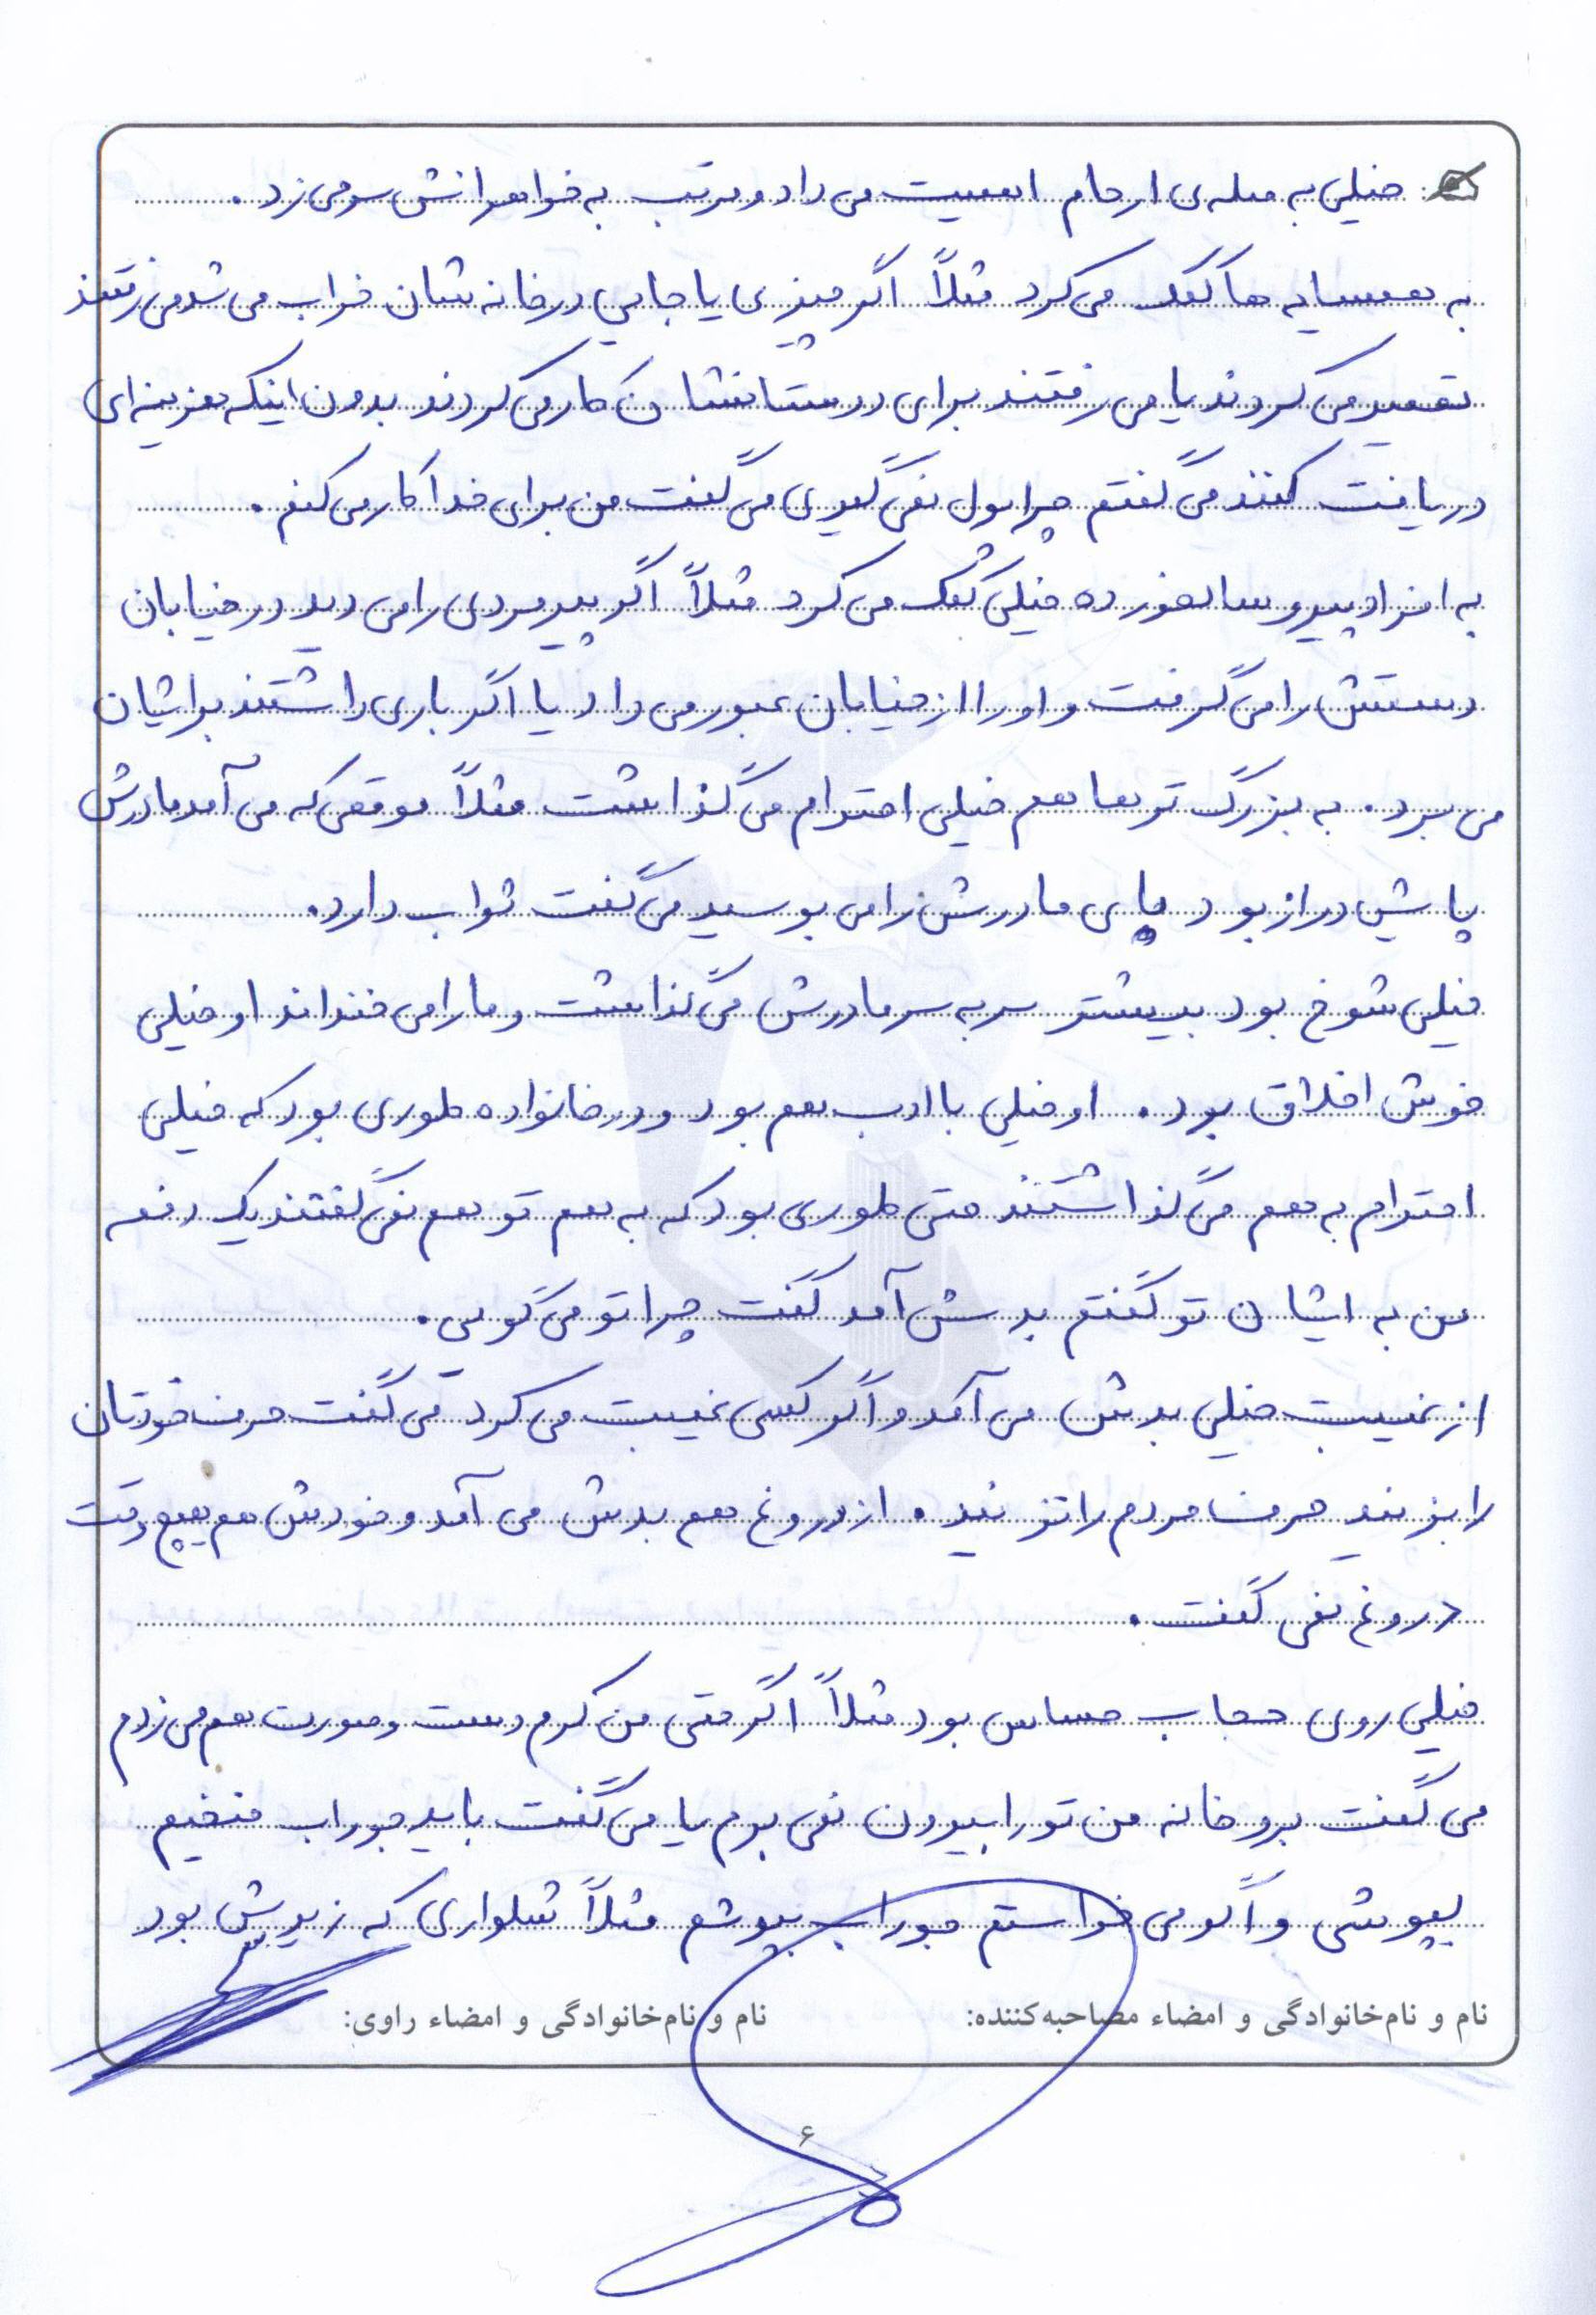 خیلی به صله‌ی ارحام اهمیت می داد و مرتب به خواهرانش سر می زد.
به همسایه ها کمک می کرد مثلاً اگر چیزی یا جایی در خانه شان خراب می شد می رفتند
تعمیر می کردند یا می رفتند برای دوستانشان کار می کردند بدون اینکه هزینه ای
دریافت کنند می گفتم چرا پول نمی گیری می گفت من برای خدا کار می کنم.
به افراد پیر و سالخورده خیلی کمک می کرد مثلاً اگر پیرمردی را می دید در خیابان
دستش را می گرفت و او را از خیابان عبور می داد یا اگر باری داشتند برایشان
می برد. به بزرگ ترها هم خیلی احترام می گذاشت مثلاً موقعی که می آمد مادرش
پایش دراز بود پای مادرش را می بوسید می گفت ثواب دارد.
خیلی شوخ بود بیشتر سر به سر مادرش می گذاشت و ما را می خنداند او خیلی
خوش اخلاق بود. او خیلی با ادب هم بود و در خانواده طوری بود که خیلی
احترام به هم می گذاشتند حتی طوری بود که به هم تو هم نمی گفتند یک دفعه
من به ایشان تو گفتم بدش آمد گفت چرا تو می گویی.
از غیبت خیلی بدش می آمد و اگر کسی غیبت می کرد می گفت حرف خودتان
را بزنید حرف مردم را نزنید. از دروغ هم بدش می آمد و خودش هم هیچ وقت
دروغ نمی گفت.
خیلی روی حجاب حساس بود مثلاً اگر حتی من کرم دست و صورت هم می زدم
می گفت برو خانه من تو را بیرون نمی برم یا می گفت باید جوراب ضخیم
بپوشی و اگر می خواستم جوراب بپوشم مثلاً شلواری که زیرش بود
نام و نام‌خانوادگی و امضاء مصاحبه‌کننده: نام و نام‌خانوادگی و امضاء راوی:
۶